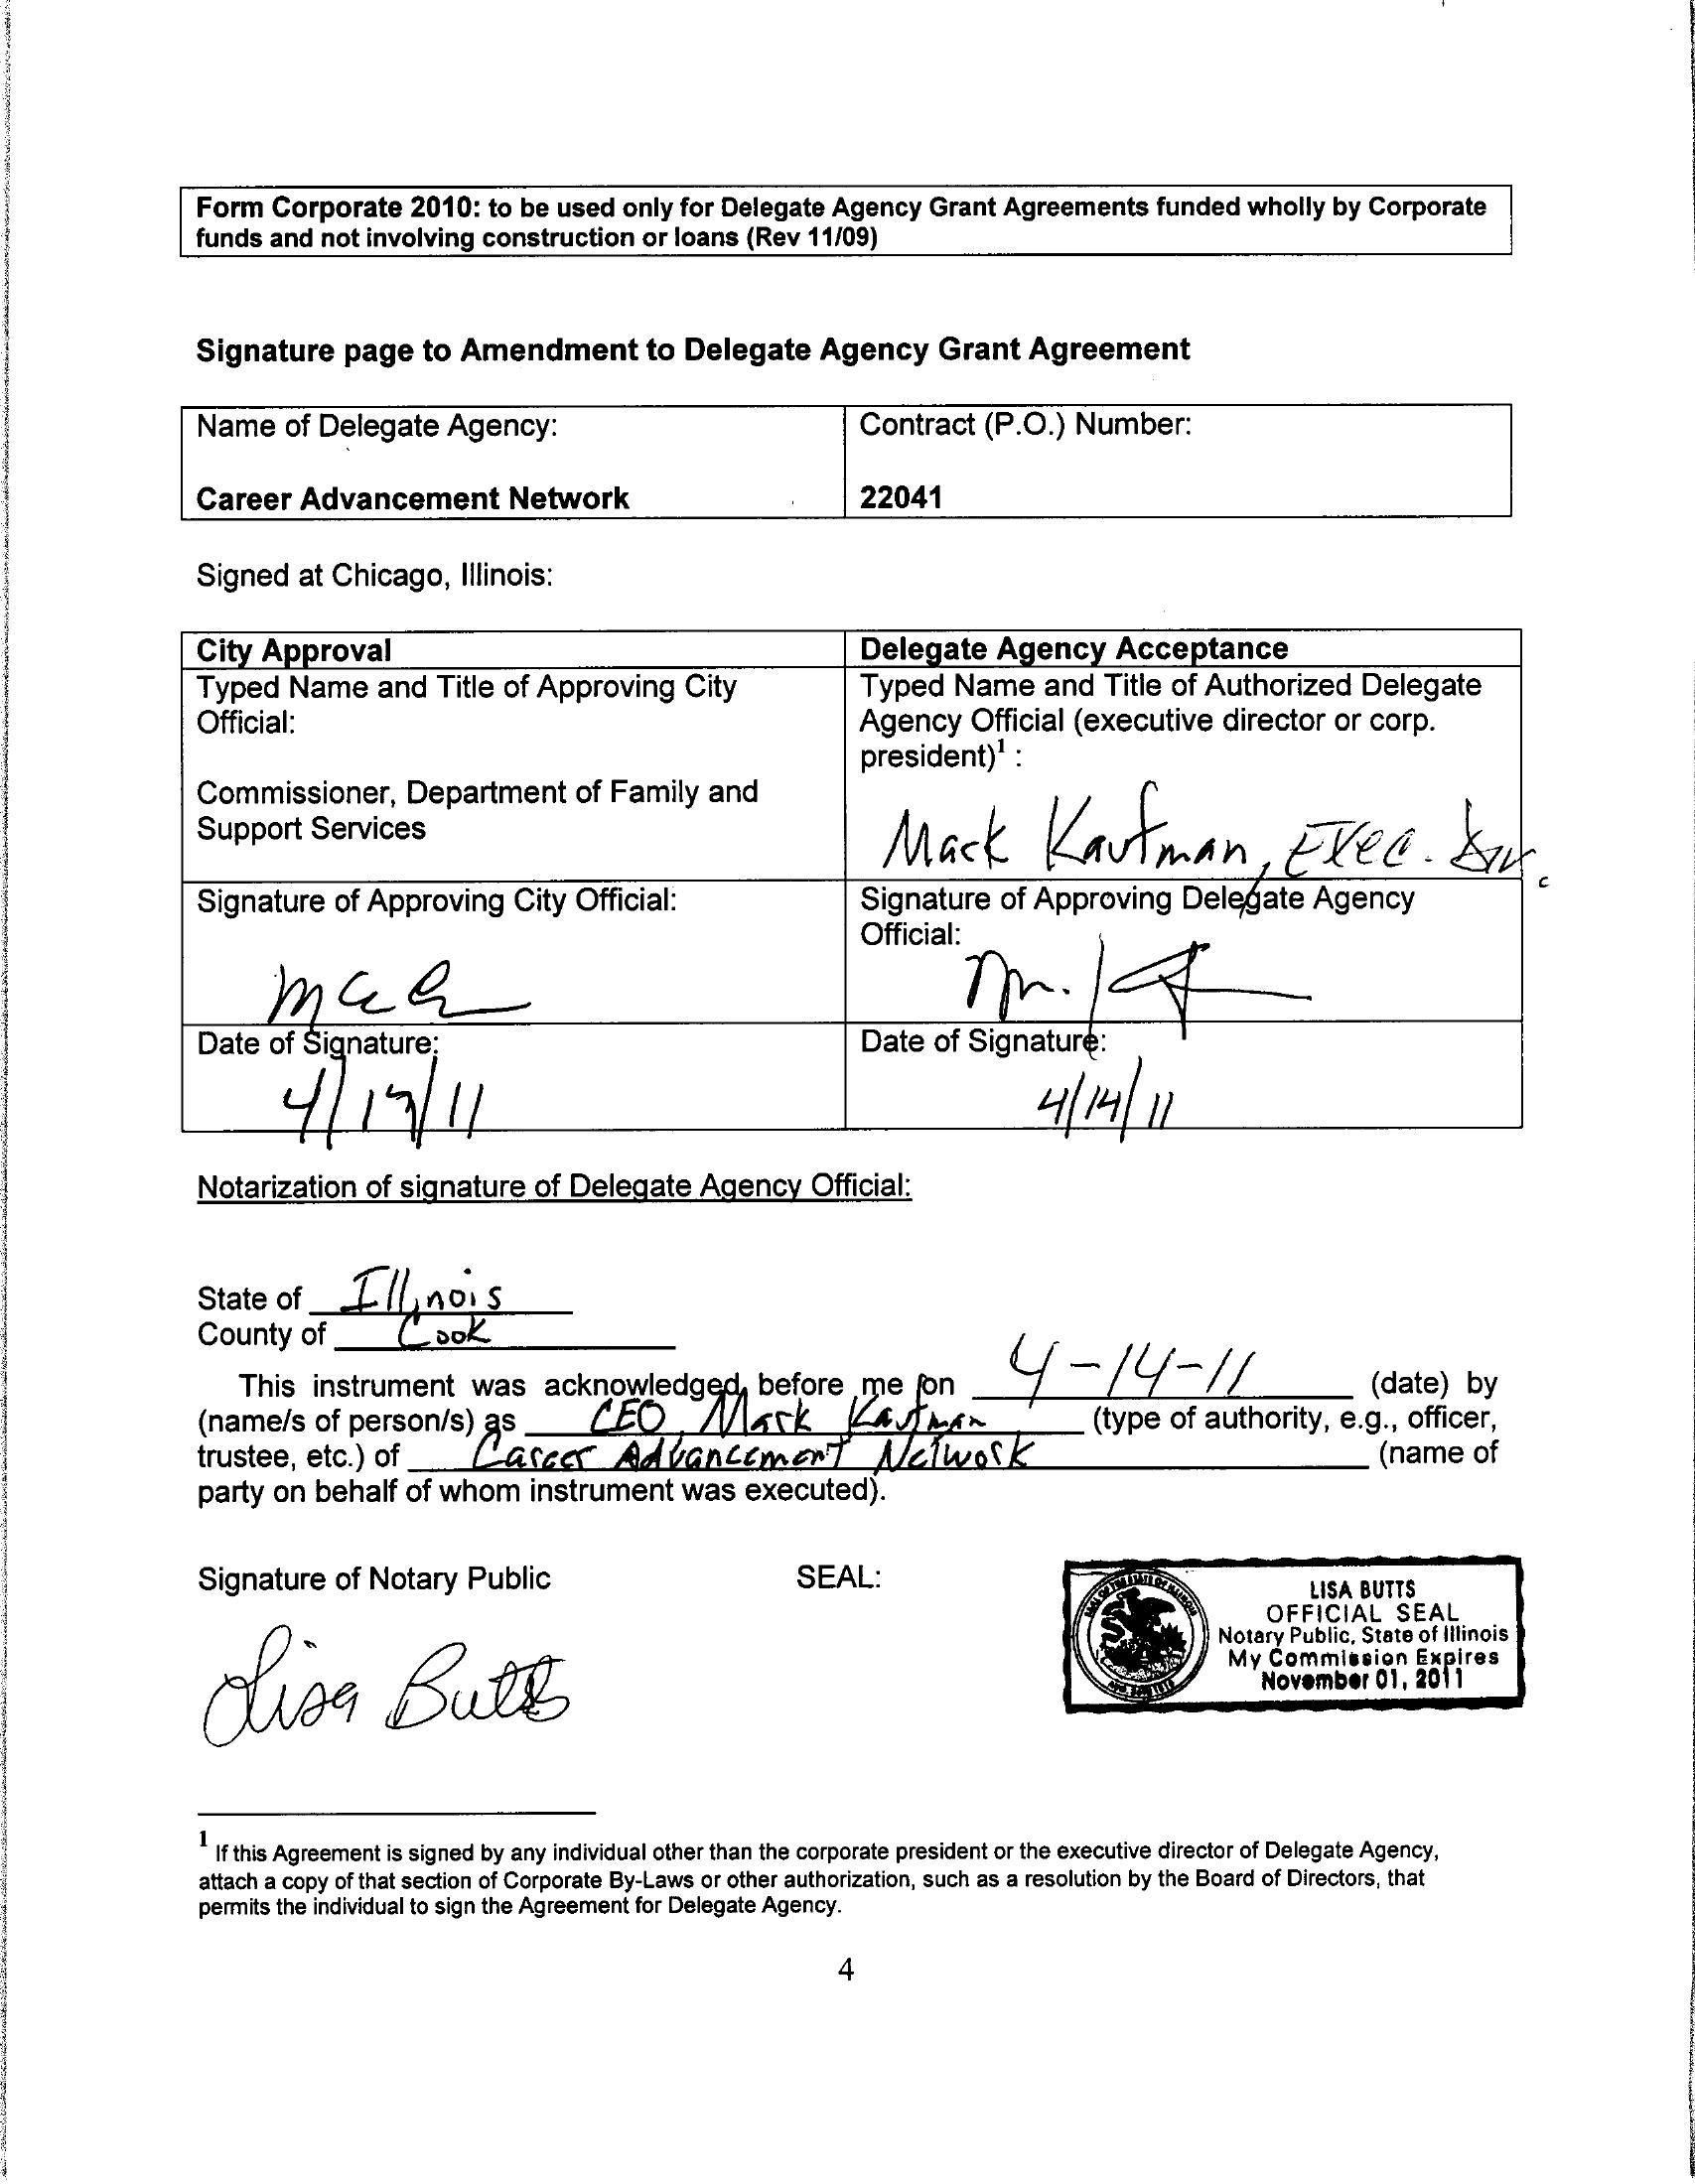 Form Corporate 2010: to be used only for Delegate Agency Grant Agreements funded wholly by Corporate
funds and not involving construction or loans (Rev 11/09)
Signature page to Amendment to Delegate Agency Grant Agreement
Name of Delegate Agency:
Career Advancement Network
Contract (P.O.) Number:
22041
Signed at Chicago, Illinois:
City Approval
Typed Name and Title of Approving City
Official:
Commissioner, Department of Family and
Support Services
Signature of Approving City Official:
Date of Signature:
4/17/11
Delegate Agency Acceptance
Typed Name and Title of Authorized Delegate
Agency Official (executive director or corp.
president)¹ :
Mark Kaufman, Exec. Dir.
Signature of Approving Delegate Agency
Official:
Date of Signature:
4/14/11
Notarization of signature of Delegate Agency Official:
State of Illinois
County of Cook
This instrument was acknowledged before me on 4-14-11 (date) by
(name/s of person/s) as CEO, Mark Kaufman (type of authority, e.g., officer,
trustee, etc.) of Career Advancement Network (name of
party on behalf of whom instrument was executed).
Signature of Notary Public
Lisa Butts
SEAL:
LISA BUTTS
OFFICIAL SEAL
Notary Public, State of Illinois
My Commission Expires
November 01, 2011
¹ If this Agreement is signed by any individual other than the corporate president or the executive director of Delegate Agency,
attach a copy of that section of Corporate By-Laws or other authorization, such as a resolution by the Board of Directors, that
permits the individual to sign the Agreement for Delegate Agency.
4